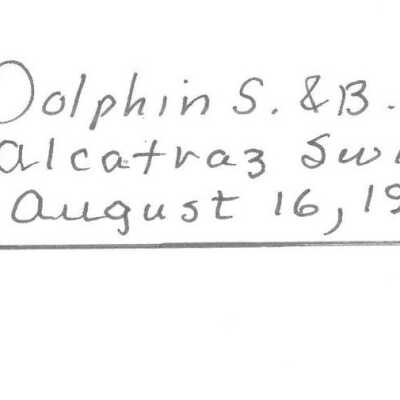 Dolphin S. & B.
Alcatraz Sw
August 16, 19